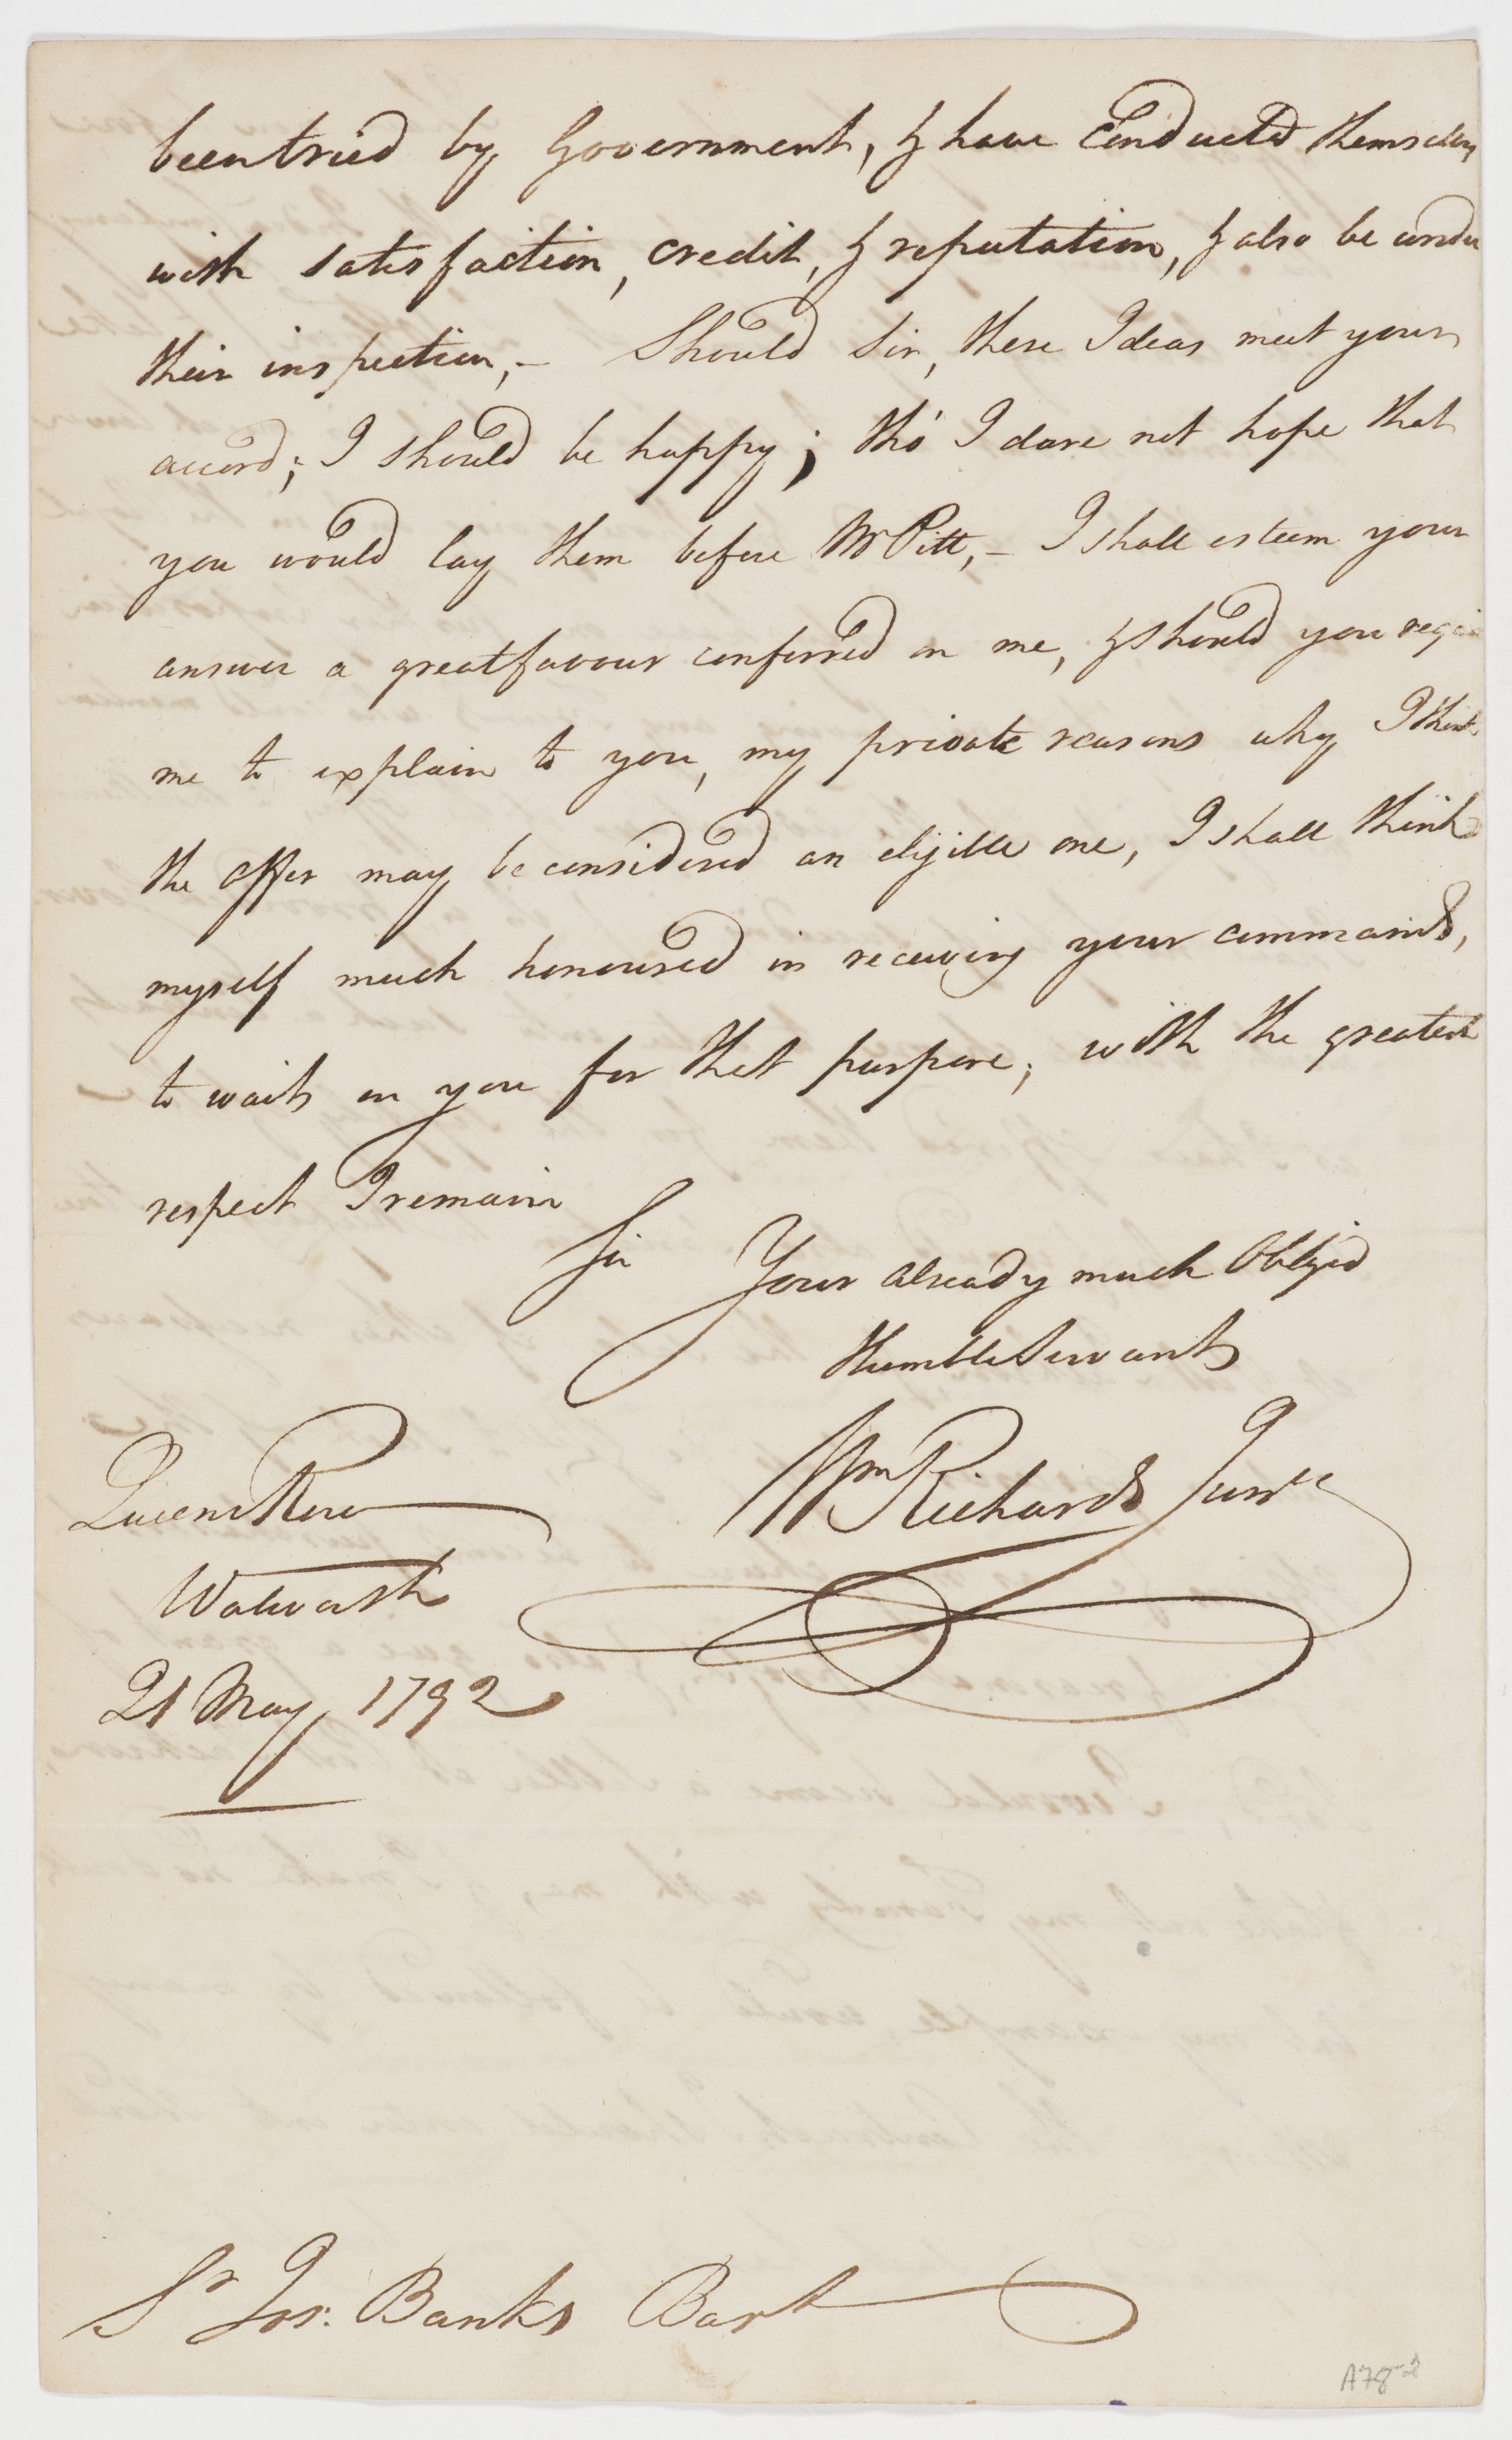 been tried by Government, & have Conducted themselves
with satisfaction, credit, & reputation, & also be under
their inspection,- Should Sir, these Ideas meet your
accord; I should be happy; tho' I dare not hope that
you would lay them before Mr Pitt,- I shall esteem your
answer a great favour conferred on me, & should you requi
me to explain to you, my private reasons why I think
the offer may be considered an eligible one, I shall think
myself much honoured in receiving your commands,
to wait on you for that purpose; with the greatest
respect I remain
Sir Your already much Obliged
Humble Servant
Wm Richards Junr
Queens Row
Walworth
21 May 1792
Sr Jos. Banks Bart
A78-2